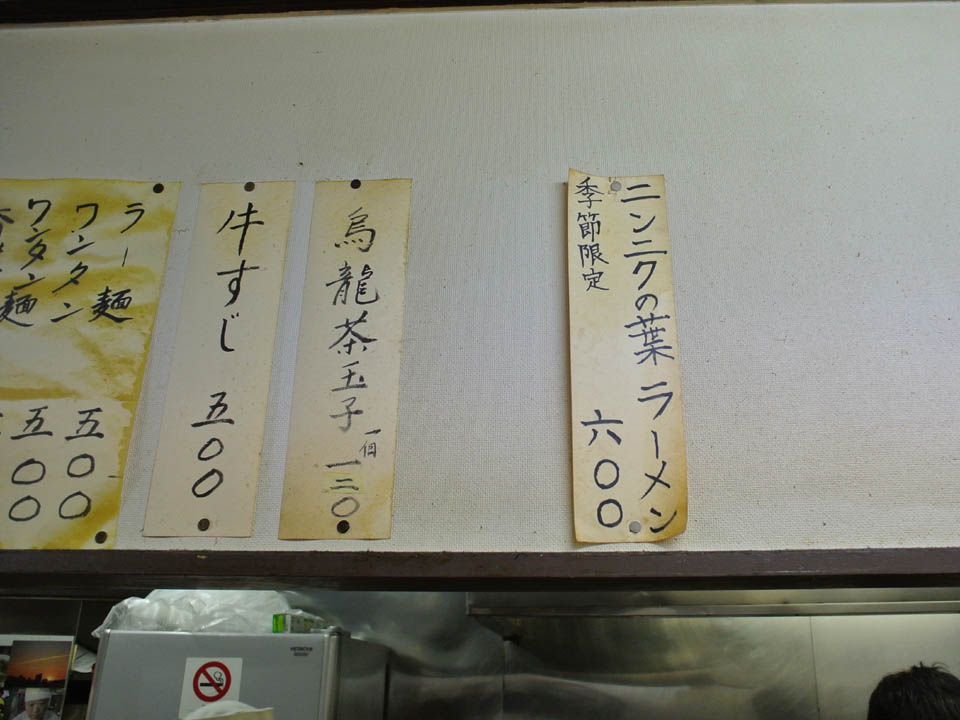 ニンニクの葉ラーメン
季節限定
六〇〇
烏龍茶玉子
一個
一二〇
牛すじ 五〇〇
ラー麺
ワンタン
五〇〇
ワンタン麺
五〇〇
HITACHI